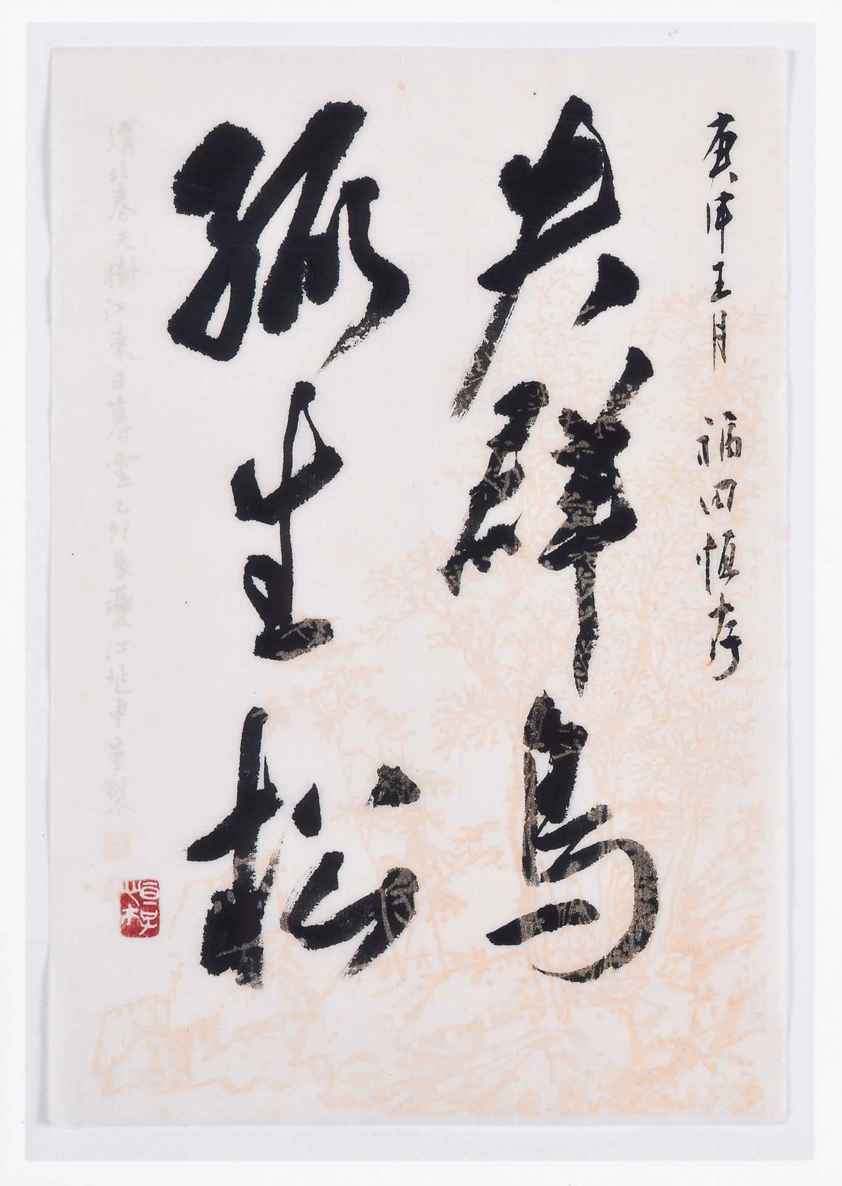 庚申五月 福田恆存
失群鳥
孤生松